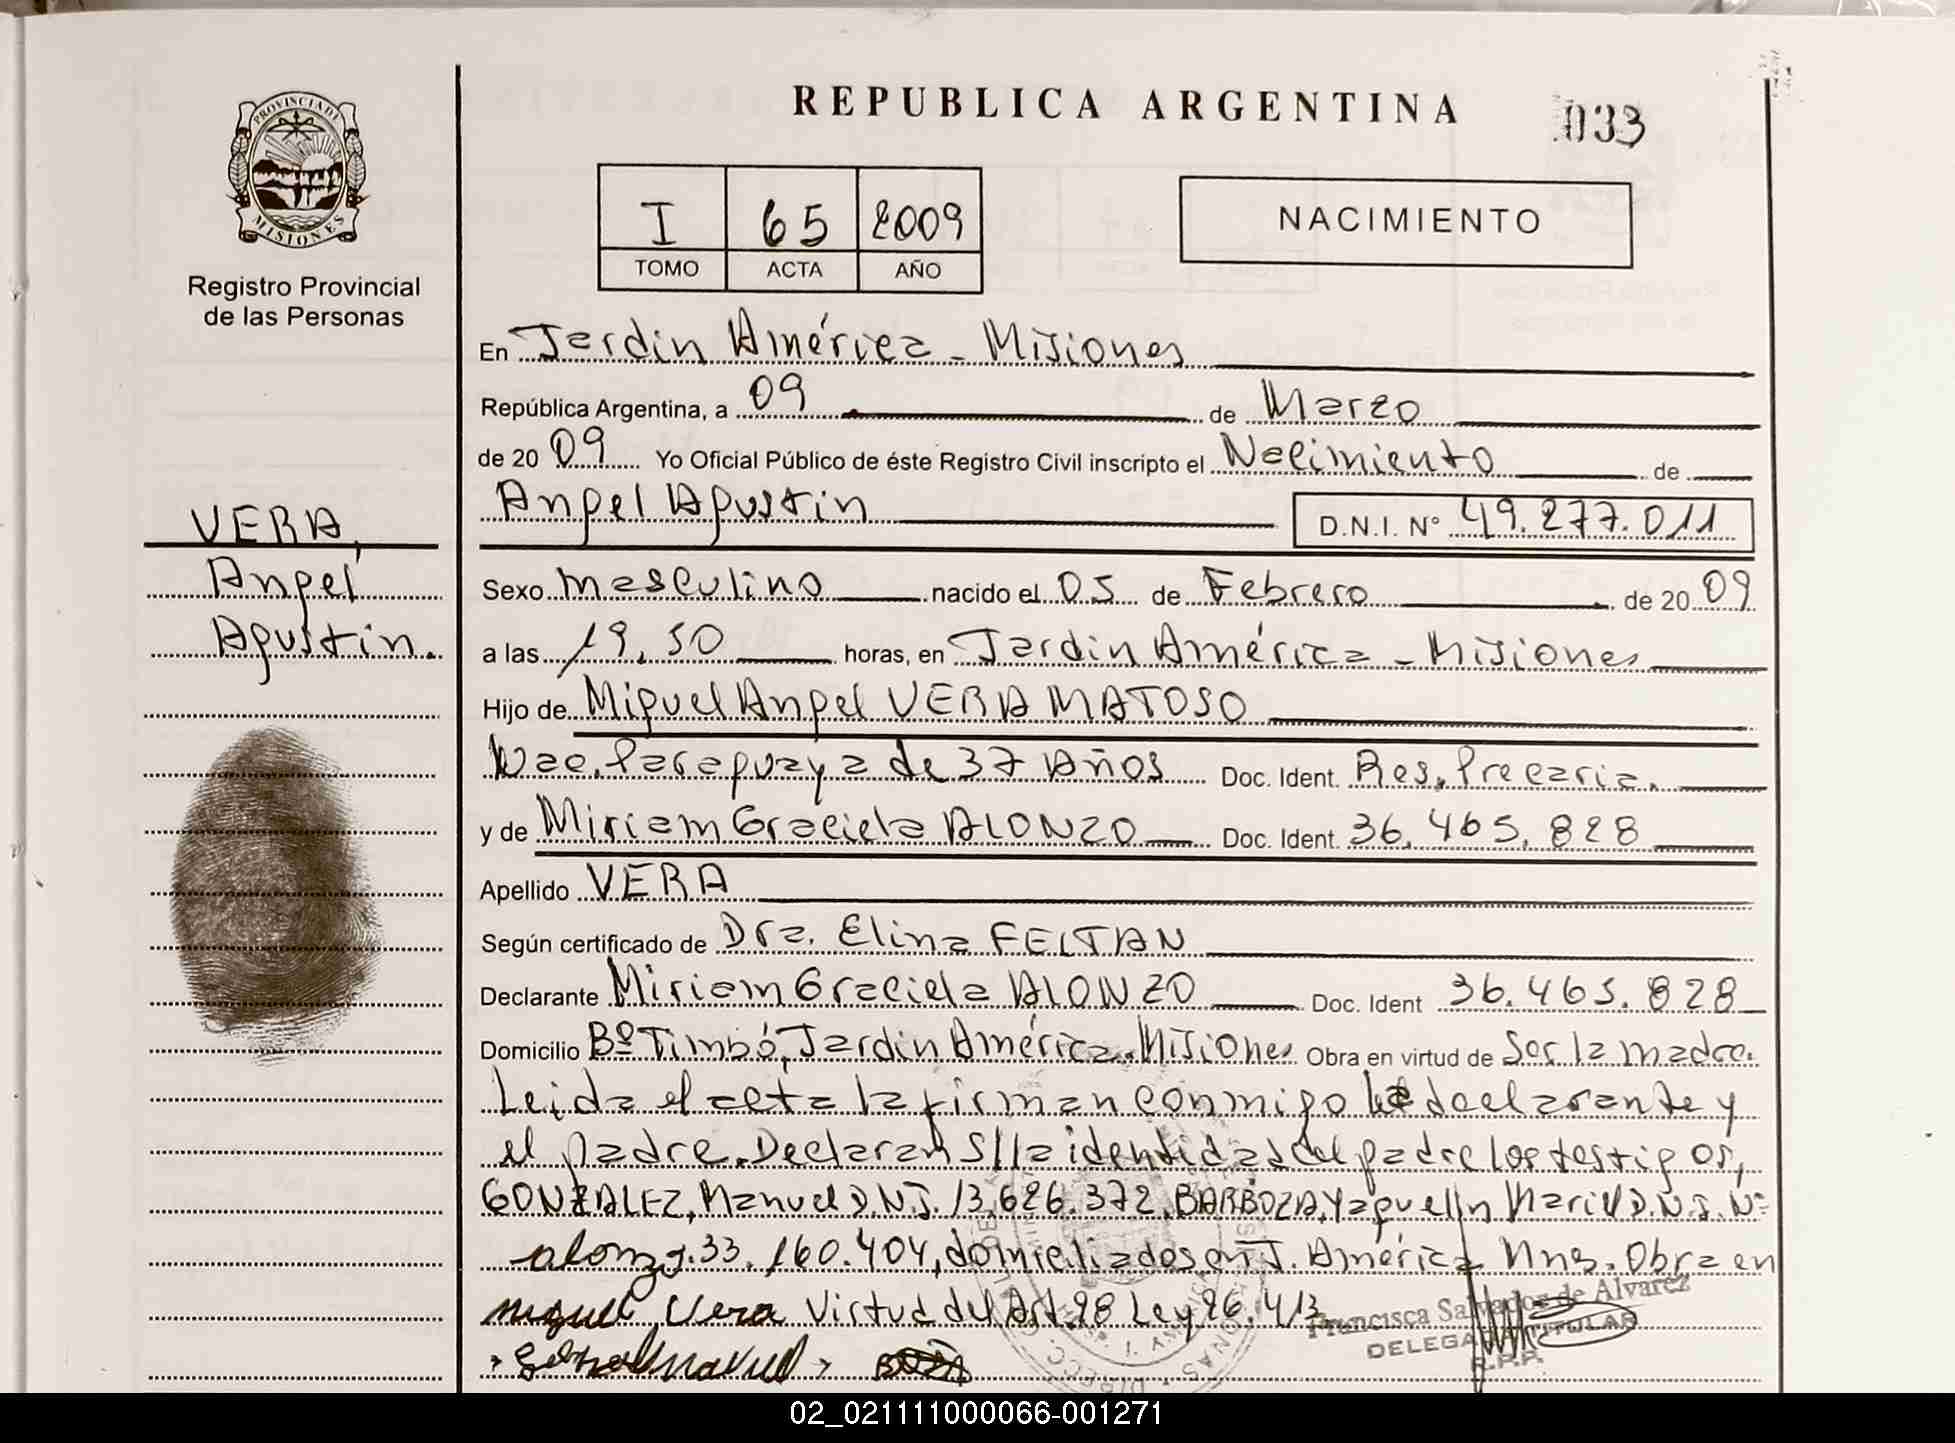 REPUBLICA ARGENTINA
033
PROVINCIA DE
MISIONES
Registro Provincial
de las Personas
I 65 2009
TOMO ACTA AÑO
NACIMIENTO
En Jardín América - Misiones
República Argentina, a 09 de Marzo
de 20 09 Yo Oficial Público de éste Registro Civil inscripto el Nacimiento de
Angel Agustin D.N.I. N° 49.277.011
VERA,
Angel
Agustin.
Sexo masculino nacido el 05 de Febrero de 20 09
a las 19,50 horas, en Jardin América - Misiones
Hijo de Miguel Angel VERA MATOSO
Nac. Paraguaya de 37 Años Doc. Ident. Res. Precaria.
y de Miriam Graciela ALONZO Doc. Ident. 36.465.828
Apellido VERA
Según certificado de Dra. Elina FELTAN
Declarante Miriam Graciela ALONZO Doc. Ident 36.465.828
Domicilio Bº Timbó, Jardin América, Misiones Obra en virtud de Ser la madre.
Leida el acta la firman conmigo la declarante y
el padre. Declaran s/ la identidad del padre los testigos,
GONZALEZ, Manuel D.N.I. 13.626.372, BARBOZA, Yaquelin Mariel D.N.I. Nº
alonzo 33.160.404, domiciliados en J. América Mnes. Obra en
miguel Vera Virtud del Art. 28 Ley 26.413
Francisca Salvados de Alvarez
DELEGADA TITULAR
R.P.P.
02_021111000066-001271